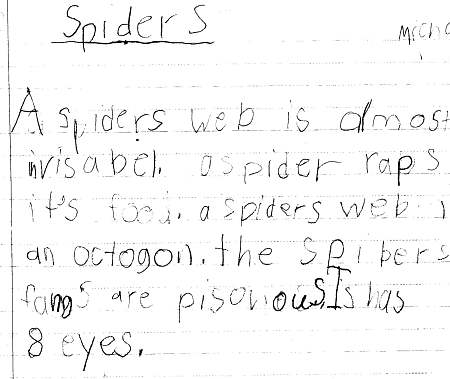 Spiders
Micha
A spiders web is almost
invisabel. a spider raps
it's food. a spiders web i
an octogon. the spibers
fangs are pisonous Is has
8 eyes.